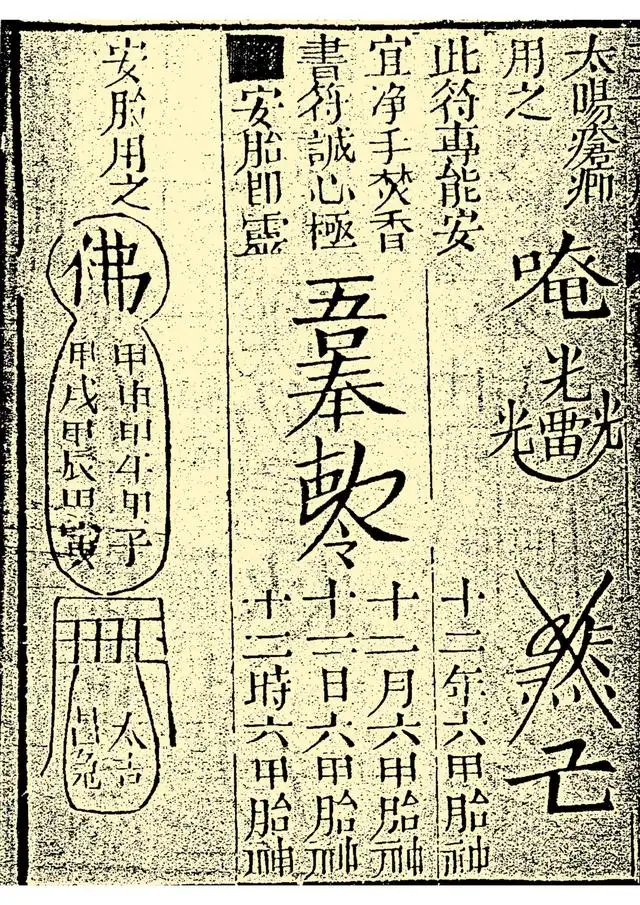 太
用之
唵
光
光雷光
此符專能安
宜净手焚香
書符誠心極
安胎即靈
吾奉勅令
十二年六甲胎神
十二月六甲胎神
十二日六甲胎神
十二時六甲胎神
安胎用之
佛
甲申甲午甲子
甲戌甲辰甲寅
太吉